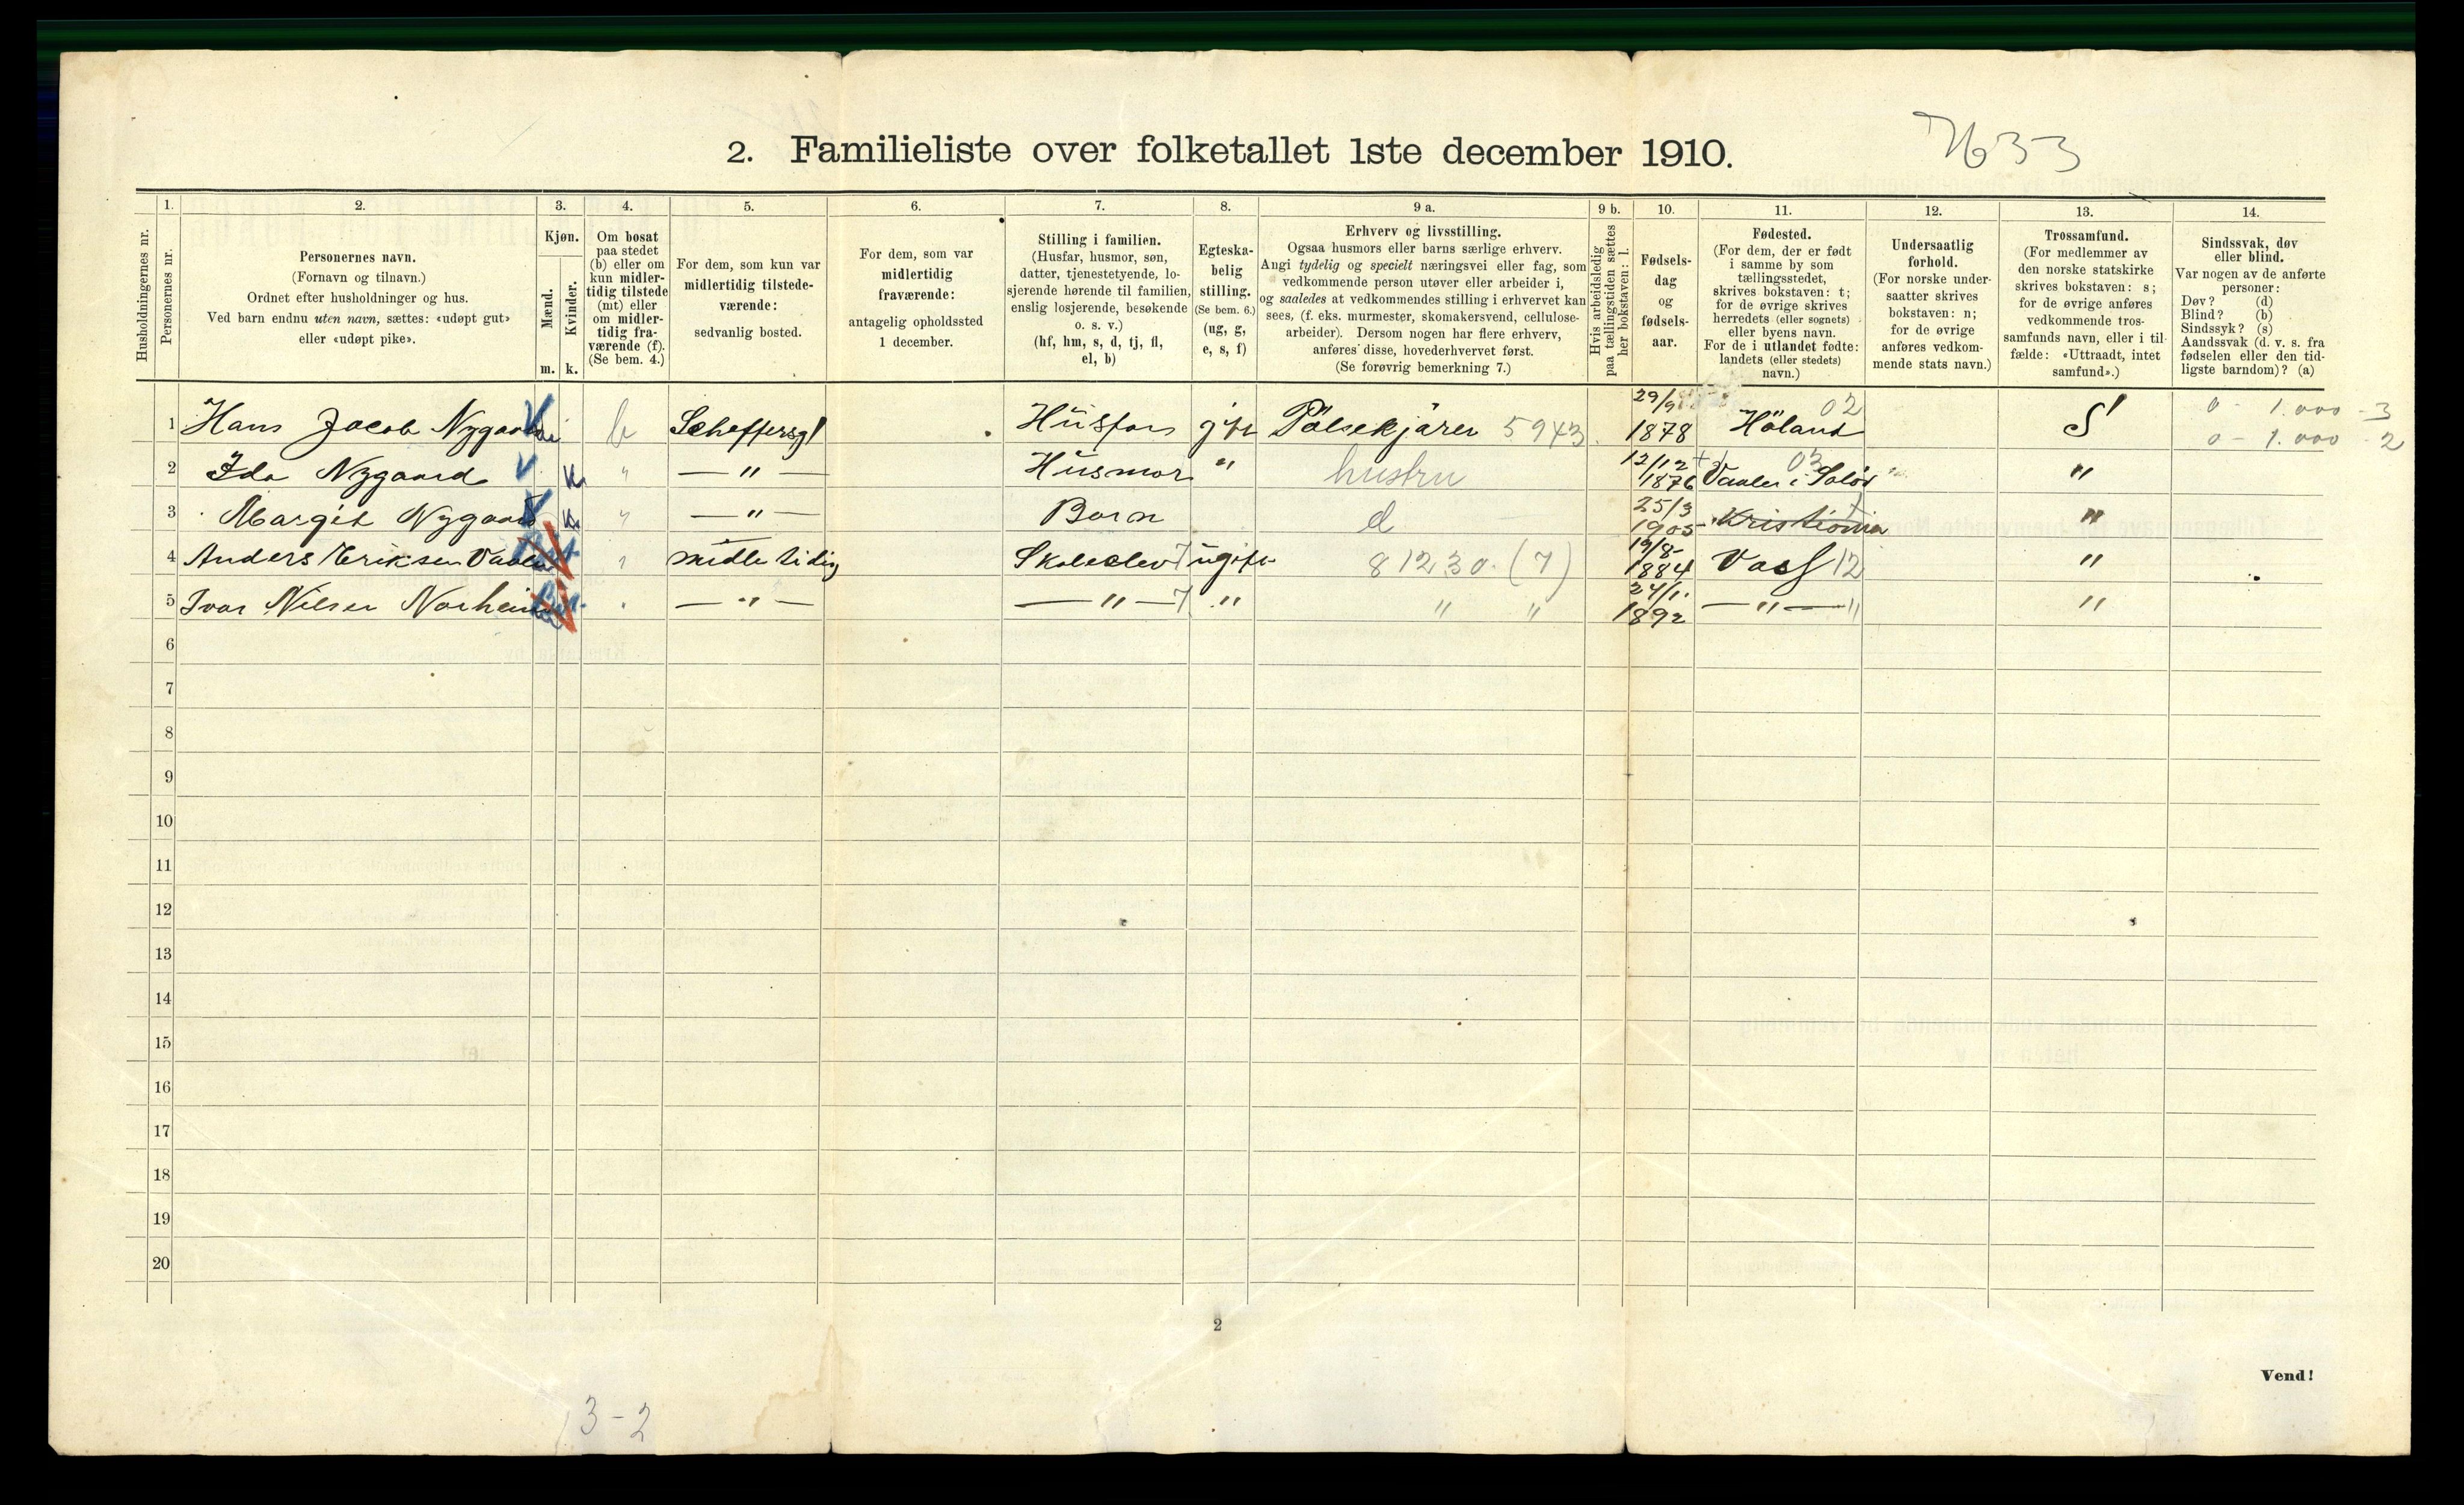 2. Familieliste over folketallet 1ste december 1910.
7633
Husholdningernes nr.
1.
Personernes nr.
2.
Personernes navn.
(Fornavn og tilnavn.)
Ordnet efter husholdninger og hus.
Ved barn endnu uten navn, sættes: «udøpt gut»
eller «udøpt pike».
3.
Kjøn.
Mænd.
Kvinder.
m. k.
4.
Om bosat
paa stedet
(b) eller om
kun midler-
tidig tilstede
(mt) eller
om midler-
tidig fra-
værende (f).
(Se bem. 4.)
5.
For dem, som kun var
midlertidig tilstede-
værende:
sedvanlig bosted.
6.
For dem, som var
midlertidig
fraværende:
antagelig opholdssted
1 december.
7.
Stilling i familien.
(Husfar, husmor, søn,
datter, tjenestetyende, lo-
sjerende hørende til familien,
enslig losjerende, besøkende
o. s. v.)
(hf, hm, s, d, tj, fl,
el, b)
8.
Egteska-
belig
stilling.
(Se bem. 6.)
(ug, g,
e, s, f)
9 a.
Erhverv og livsstilling.
Ogsaa husmors eller barns særlige erhverv.
Angi tydelig og specielt næringsvei eller fag, som
vedkommende person utøver eller arbeider i,
og saaledes at vedkommendes stilling i erhvervet kan
sees, (f. eks. murmester, skomakersvend, cellulose-
arbeider). Dersom nogen har flere erhverv,
anføres disse, hovederhvervet først.
(Se forøvrig bemerkning 7.)
9 b.
Hvis arbeidsledig
paa tællingstiden sættes
her bokstaven: l.
10.
Fødsels-
dag
og
fødsels-
aar.
11.
Fødested.
(For dem, der er født
i samme by som
tællingsstedet,
skrives bokstaven: t;
for de øvrige skrives
herredets (eller sognets)
eller byens navn.
For de i utlandet fødte:
landets (eller stedets)
navn.)
12.
Undersaatlig
forhold.
(For norske under-
saatter skrives
bokstaven: n;
for de øvrige
anføres vedkom-
mende stats navn.)
13.
Trossamfund.
(For medlemmer av
den norske statskirke
skrives bokstaven: s;
for de øvrige anføres
vedkommende tros-
samfunds navn, eller i til-
fælde: «Uttraadt, intet
samfund».)
14.
Sindssvak, døv
eller blind.
Var nogen av de anførte
personer:
Døv? (d)
Blind? (b)
Sindssyk? (s)
Aandssvak (d. v. s. fra
fødselen eller den tid-
ligste barndom)? (a)
1 Hans Jacob Nygaard b Scheffersgt Husfar gift Pølsekjører 5943. 29/9 1878 Höland 02 S 0 - 1.000 - 3
0 - 1.000 - 2
2 Ida Nygaard k " — " — Husmor " hustru 12/12 1876 Vaaler i Solør 03 "
3 Margit Nygaard k " — " — Barn d 25/3 1905 Kristiania t "
4 Anders Eriksen " midletidig Skoleelev 7 ugift 81230. (7) 19/8- 1884 Voss 12 "
5 Ivar Nilsen Norheim — " — — " — 7 " " " 24/1. 1892 — " — " "
6
7
8
9
10
11
12
13
14
15
16
17
18
19
20
2
Vend!
3-2